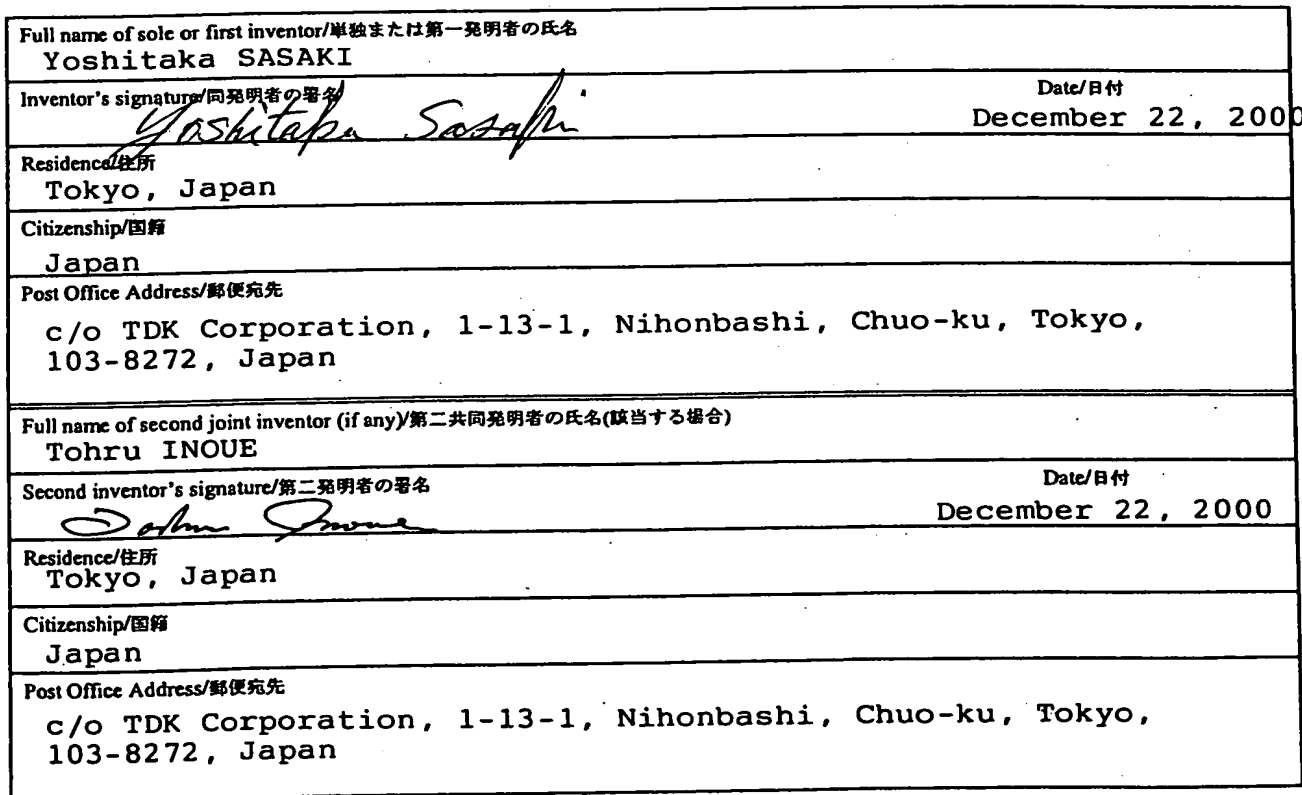 Full name of sole or first inventor/単独または第一発明者の氏名
Yoshitaka SASAKI
Inventor's signature/同発明者の署名
Date/日付
Yoshitaka Sasaki
December 22, 2000
Residence/住所
Tokyo, Japan
Citizenship/国籍
Japan
Post Office Address/郵便宛先
c/o TDK Corporation, 1-13-1, Nihonbashi, Chuo-ku, Tokyo,
103-8272, Japan
Full name of second joint inventor (if any)/第二共同発明者の氏名(該当する場合)
Tohru INOUE
Second inventor's signature/第二発明者の署名
Date/日付
Tohru Inoue
December 22, 2000
Residence/住所
Tokyo, Japan
Citizenship/国籍
Japan
Post Office Address/郵便宛先
c/o TDK Corporation, 1-13-1, Nihonbashi, Chuo-ku, Tokyo,
103-8272, Japan